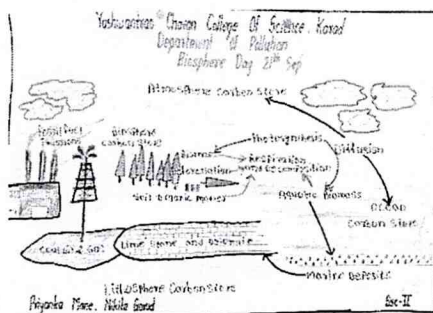 Yashwantrao Chavan College Of Science, Karad
Department of Pollution
Biosphere Day 21th Sep
Atmosphere Carbon Store
Fossil Fuel
Emissions
Biosphere
Carbon Store
Photosynthesis
Diffusion
Biomass
Respiration
and Decomposition
Deforestation
Aquatic Biomass
Soil organic matter
Ocean
Carbon Store
Coal, Oil & Gas
Lime stone and Dolomite
Marine Deposits
Lithosphere Carbon Store
Priyanka Mane, Nikita Garad
Bsc-II